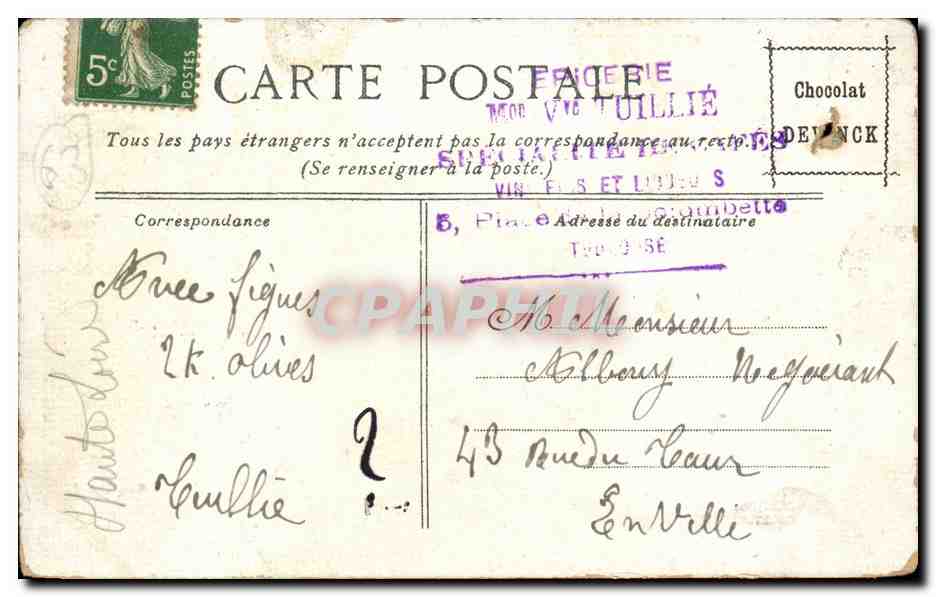 5c POSTES
CARTE POSTALE
Chocolat
DEVINCK
EPICERIE
Mon Vve TUILLIÉ
Tous les pays étrangers n'acceptent pas la correspondance au recto.
(Se renseigner à la poste.)
SPECIALITE DE CAFÉS
VINS FINS ET LIQUEURS
5, Place de la Colombette
TOULOUSE
Correspondance
Adresse du destinataire
figues
2k. olives
Tuillié
?
Haute Loire
M. Monsieur
Albouy Négociant
43 Rue du Taur
En Ville
CPAPHIL